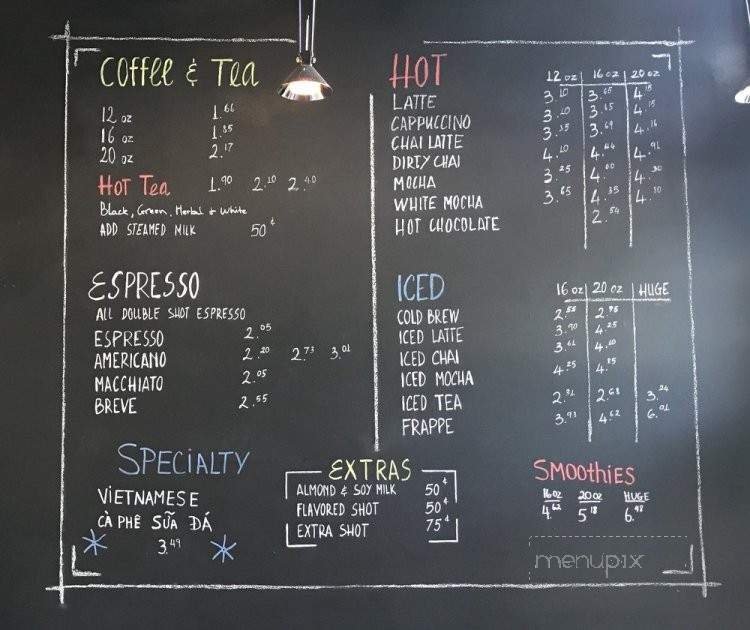 Coffee & Tea
12 oz 1.66
16 oz 1.85
20 oz 2.17
Hot Tea 1.90 2.10 2.40
Black, Green, Herbal & White
ADD STEAMED MILK 50¢
ESPRESSO
ALL DOUBLE SHOT ESPRESSO
ESPRESSO 2.05
AMERICANO 2.20 2.73 3.01
MACCHIATO 2.05
BREVE 2.55
SPECIALTY
VIETNAMESE
CÀ PHÊ SỮA ĐÁ
3.49
HOT
12 oz 16 oz 20 oz
LATTE 3.10 3.65 4.15
CAPPUCCINO 3.10 3.65 4.15
CHAI LATTE 3.35 3.69 4.16
DIRTY CHAI 4.10 4.91
MOCHA 3.25 4.00 4.30
WHITE MOCHA 3.65 4.35 4.10
HOT CHOCOLATE 2.54
ICED
16 oz 20 oz HUGE
COLD BREW
ICED LATTE 3.90 4.25
ICED CHAI 3.61
ICED MOCHA 4.25
ICED TEA 2.68 3.24
FRAPPE 3.93 4.62 6.01
EXTRAS
ALMOND & SOY MILK 50¢
FLAVORED SHOT 50¢
EXTRA SHOT 75¢
SMOOTHIES
16oz 20oz HUGE
4.62 5.18 6.98
menupix